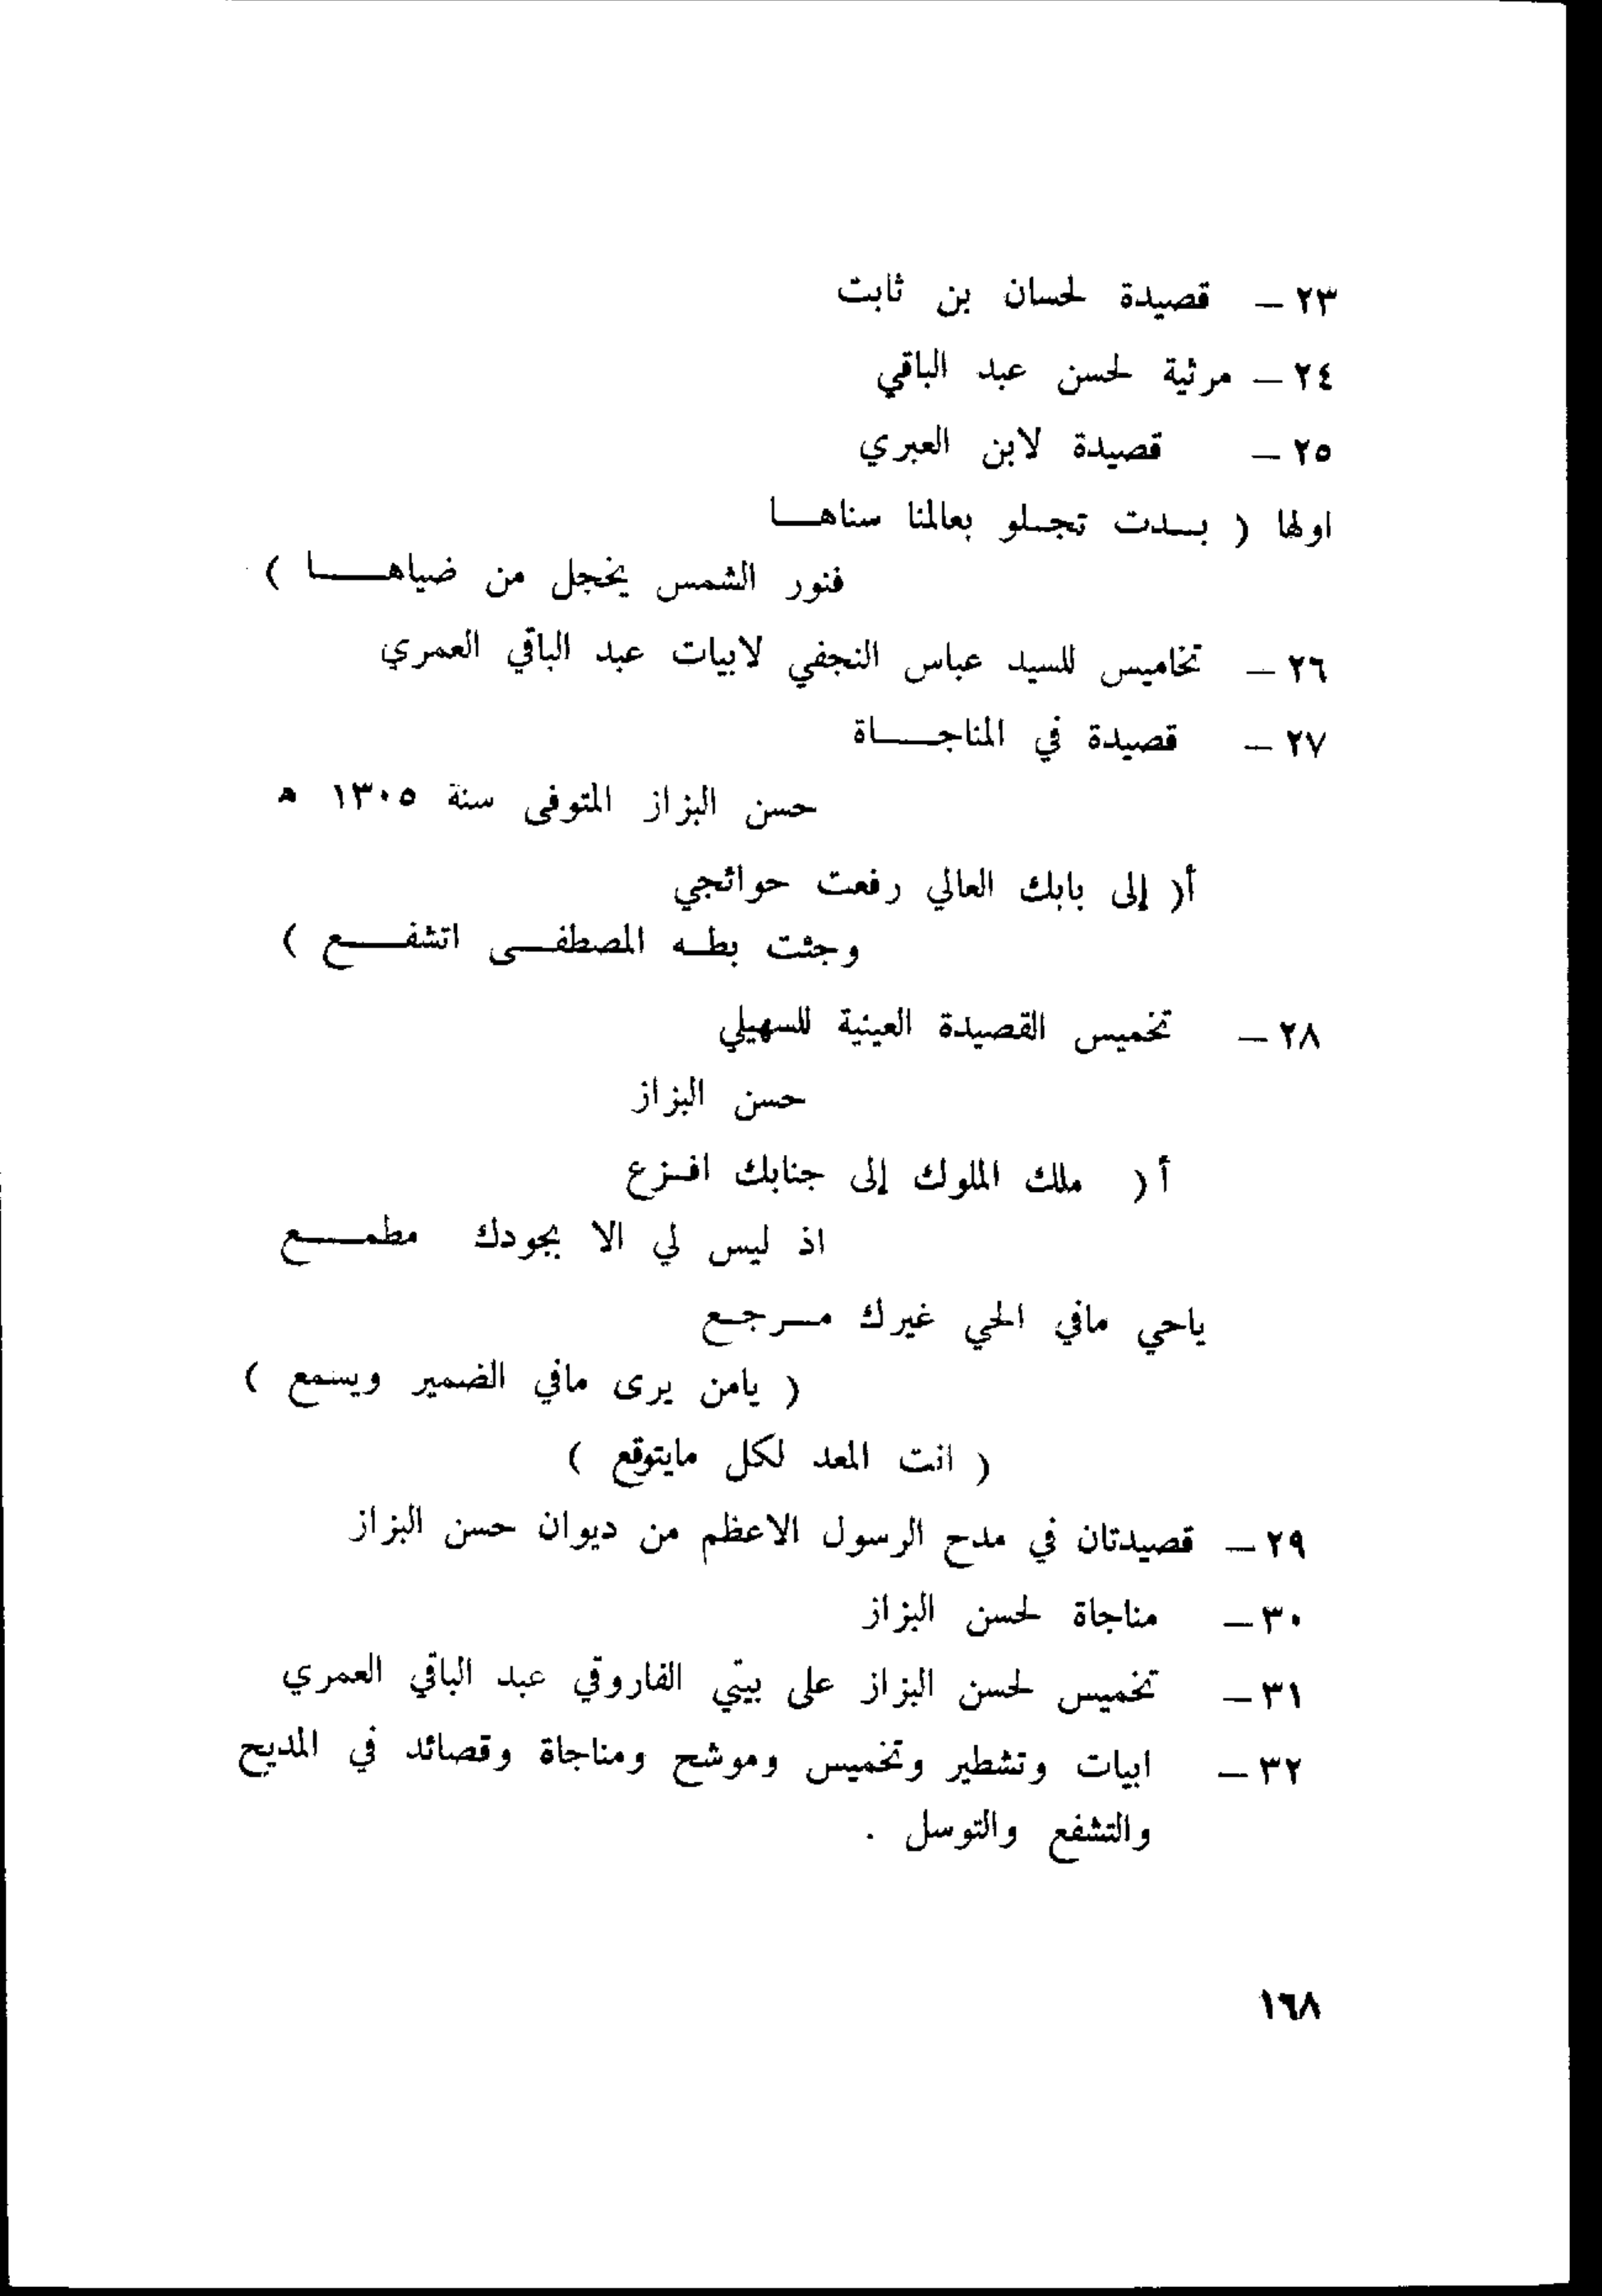 ٢٣ – قصيدة لحسان بن ثابت
٢٤ – مرثية لحسن عبد الباقي
٢٥ – قصيدة لابن العبري
اولها ( بـــدت تجــلو بعالمنا سناهـــا
فنور الشمس يخجل من ضياهـــــا )
٢٦ – تخاميس للسيد عباس النجفي لابيات عبد الباقي العمري
٢٧ – قصيدة في المناجـــاة
حسن البزاز المتوفى سنة ١٣٠٥ ه
أ( إلى بابك العالي رفعت حوائجي
وجئت بطــه المصطفــى اتشفـــع )
٢٨ – تخميس القصيدة العينية للسهيلي
حسن البزاز
أ ( ملك الملوك إلى جنابك افــزع
اذ ليس لي الا بجودك مطمـــــع
ياحي مافي الحي غيرك مـــرجــع
( يامن يرى مافي الضمير ويسمع )
( انت المعد لكل مايتوقع )
٢٩ – قصيدتان في مدح الرسول الاعظم من ديوان حسن البزاز
٣٠ – مناجاة لحسن البزاز
٣١ – تخميس لحسن البزاز على بيتي الفاروقي عبد الباقي العمري
٣٢ – ابيات وتشطير وتخميس وموشح ومناجاة وقصائد في المديح
والتشفع والتوسل .
١٦٨